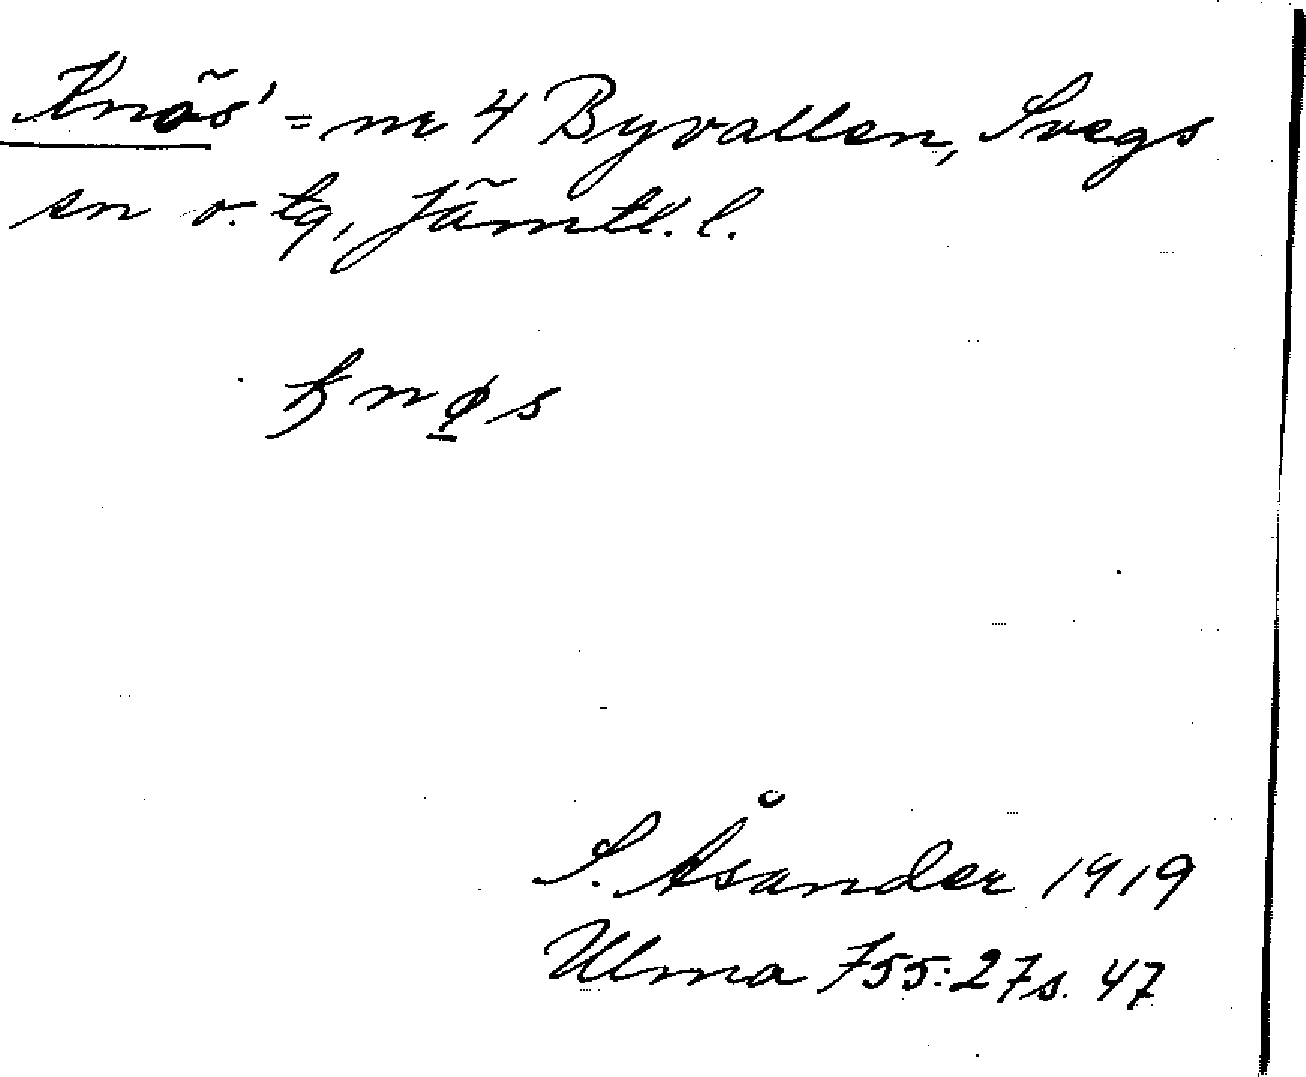 Knös' = nr 4 Byvallen, Svegs
sn o. tg, Jämtl. l.
knø̲s
S. Åsander 1919
Ulma 755:27 s. 47